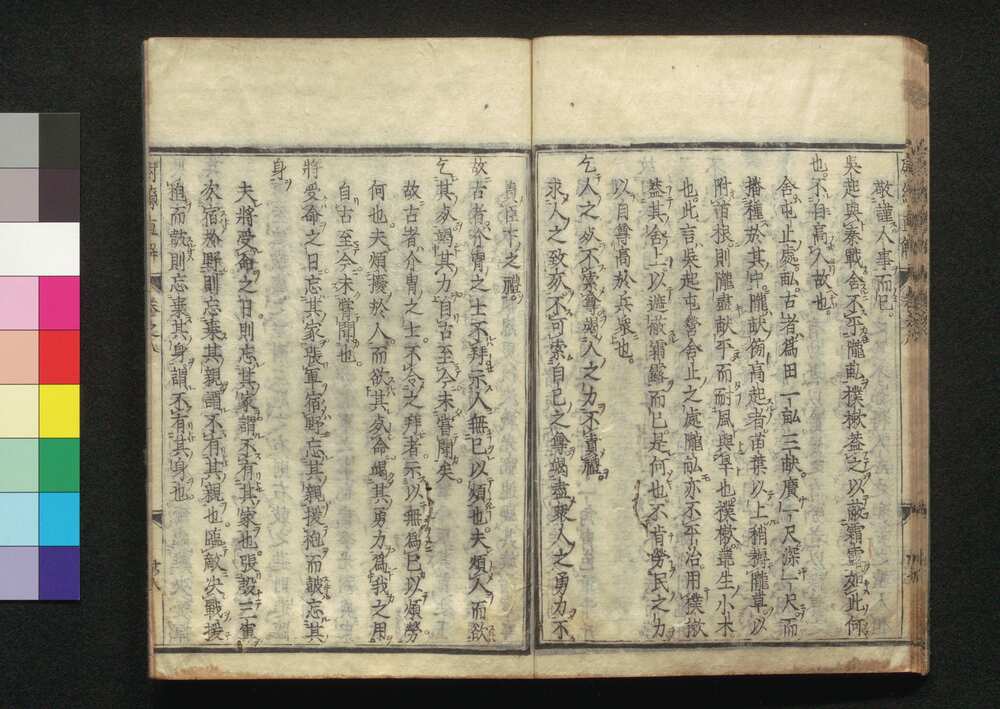 敬謹人事而已
吳起與秦戰舍不平隴畝樸樕蓋之以蔽霜露如此何
也不自高人故也
舍屯止處畝古者爲田一畝三畎廣一尺深一尺而
播種於其中隴畎傍高起者苗葉以上稍耨隴草以
附苗根則隴盡畎平而耐風與旱也樸樕叢生小木
也此言吳起屯營舍止之處隴畝亦不平治用樸樕
蓋其舍上以遮蔽霜露而已是何也不肯勞民之力
以自尊高於兵衆也
乞人之死不索尊竭人之力不責禮
求人之致死不可索自己之尊竭盡衆人之勇力不
責臣下之禮
故古者介冑之士不拜示人無已以煩也夫煩人而欲
乞其死竭其力自古至今未嘗聞矣
故古者介冑之士不令之拜者示以無爲已以煩勞
何也夫煩擾於人而欲其死命竭其勇力爲我之用
自古至今未嘗聞也
將受命之日忘其家張軍宿野忘其親援枹而鼓忘其
身
夫將受命之日則忘其家謂不有其家也張設三軍
次宿於野則忘棄其親謂不有其親也臨敵決戰援
枹而鼓則忘棄其身謂不有其身也